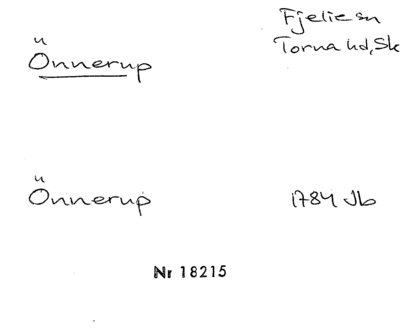 Fjelie sn
Önnerup
Torna hd, Sk
Önnerup
1784 Jb
Nr 18215